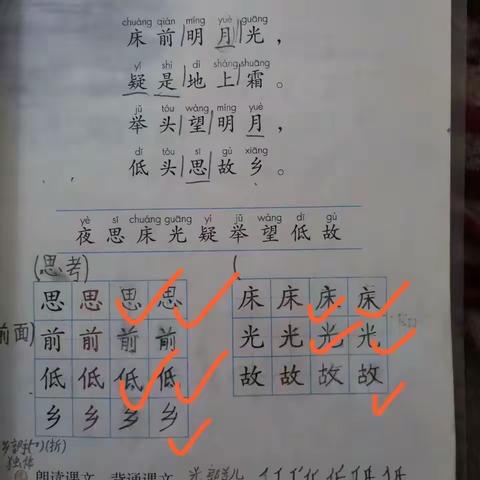 chuáng qián míng yuè guāng
床前明月光，
yí shì dì shàng shuāng
疑是地上霜。
jǔ tóu wàng míng yuè
举头望明月，
dī tóu sī gù xiāng
低头思故乡。
yè sī chuáng guāng yí jǔ wàng dī gù
夜思床光疑举望低故
(思考)
思思思思 床床床床
前面) 前前前前 光光光光
低低低低 故故故故
乡乡乡乡
(折)
独体
朗读课文 背诵课文